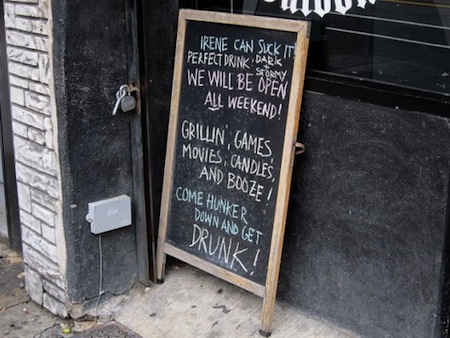 Saloon
IRENE CAN SUCK IT
PERFECT DRINK, DARK
STORMY
WE WILL BE OPEN
ALL WEEKEND!
GRILLIN', GAMES,
MOVIES, CANDLES,
AND BOOZE!
COME HUNKER
DOWN AND GET
DRUNK!